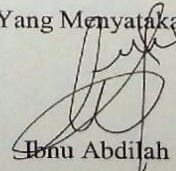 Yang Menyataka
Ibnu Abdilah